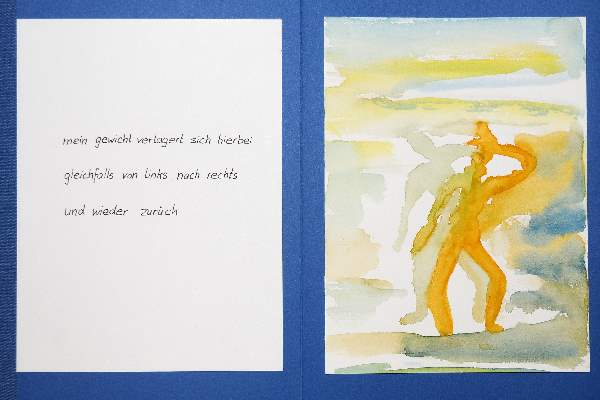 mein gewicht verlagert sich hierbei
gleichfalls von links nach rechts
und wieder zurück